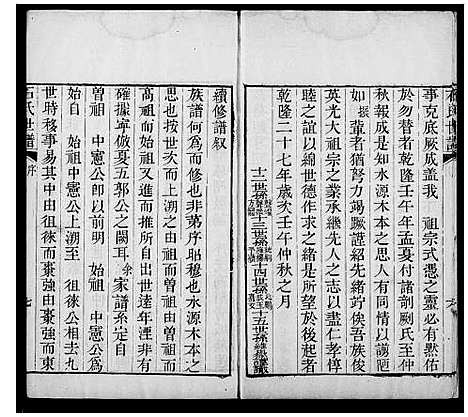 石氏世譜
事克底厥成蓋我　祖宗式憑之靈必有然佑
於勿替者乾隆壬午年孟夏付諸剞劂氏至壬
秋報成於是知水源木本之思人有同
如振輩者猶努力竭蹶謹紹先人箕俟吾族俊
英光大祖宗之業承繼先人之志以盡仁孝惇
睦之誼以綿世德作求之緒是所望於後起者
乾隆二十七年歲次壬午仲秋之月
十二世孫
十三世孫
古世孫
十五世孫
謹識
續修譜叙
族譜何為而修也非第序昭穆也水源木本之
思也按世次而上溯至　始祖而下由曾祖而
高祖而始祖又進而推所自出世遠年湮非有
確據寧仍夏五郭公之闕耳余家譜系定自
曾祖　中憲公即以前明　始祖　中憲公為
始自　始祖中憲公上溯至　徂徠公相去九
世時移事易其中由徂徠而棗強由棗強而東
石氏世譜
序
七